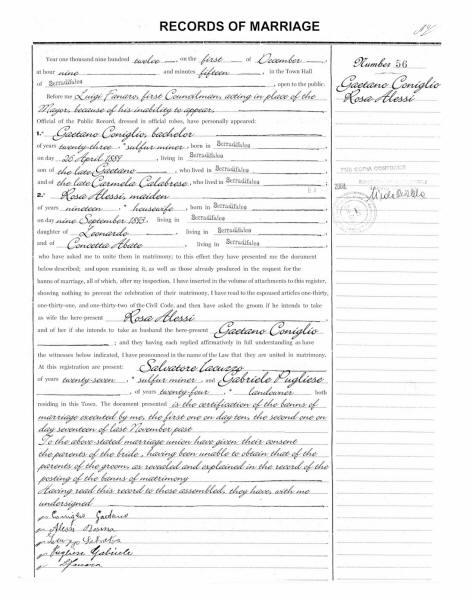 RECORDS OF MARRIAGE
Year one thousand nine hundred twelve, on the first of December,
at hour nine and minutes fifteen, in the Town Hall
of Serradifalco, open to the public.
Before me Luigi Fanara, first Councilman, acting in place of the
Mayor, because of his inability to appear,
Official of the Public Record, dressed in official robes, have personally appeared:
1.° Gaetano Coniglio, bachelor
of years twenty-three, sulfur miner, born in Serradifalco
on day 26 April 1889, living in Serradifalco
son of the late Gaetano, who lived in Serradifalco
and of the late Carmela Calabrese, who lived in Serradifalco
2.° Rosa Alessi, maiden
of years nineteen, housewife, born in Serradifalco
on day nine September 1893, living in Serradifalco
daughter of Leonardo, living in Serradifalco
and of Concetta Abate, living in Serradifalco
who have asked me to unite them in matrimony; to this effect they have presented me the document
below described; and upon examining it, as well as those already produced in the request for the
banns of marriage, all of which, after my inspection, I have inserted in the volume of attachments to this register,
showing nothing to prevent the celebration of their matrimony, I have read to the espoused articles one-thirty,
one-thirty-one, and one-thirty-two of the Civil Code, and then have asked the groom if he intends to take
as wife the here-present Rosa Alessi
and of her if she intends to take as husband the here-present Gaetano Coniglio
; and they having each replied affirmatively in full understanding as have
the witnesses below indicated, I have pronounced in the name of the Law that they are united in matrimony.
At this registration are present: Salvatore Iacuzzo
of years twenty-seven, sulfur miner, and Gabriele Pugliese
, of years twenty-four, landowner, both
residing in this Town. The document presented is the certification of the banns of
marriage executed by me, the first one on day ten, the second one on
day seventeen of last November past
To the above stated marriage union have given their consent
the parents of the bride, having been unable to obtain that of the
parents of the groom, as revealed and explained in the record of the
posting of the banns of matrimony
Having read this record to those assembled, they have, with me
undersigned
Coniglio Gaetano
Alessi Rosina
Pugliese Gabriele
Fanara
Number 56
Gaetano Coniglio
Rosa Alessi
PER COPIA CONFORME